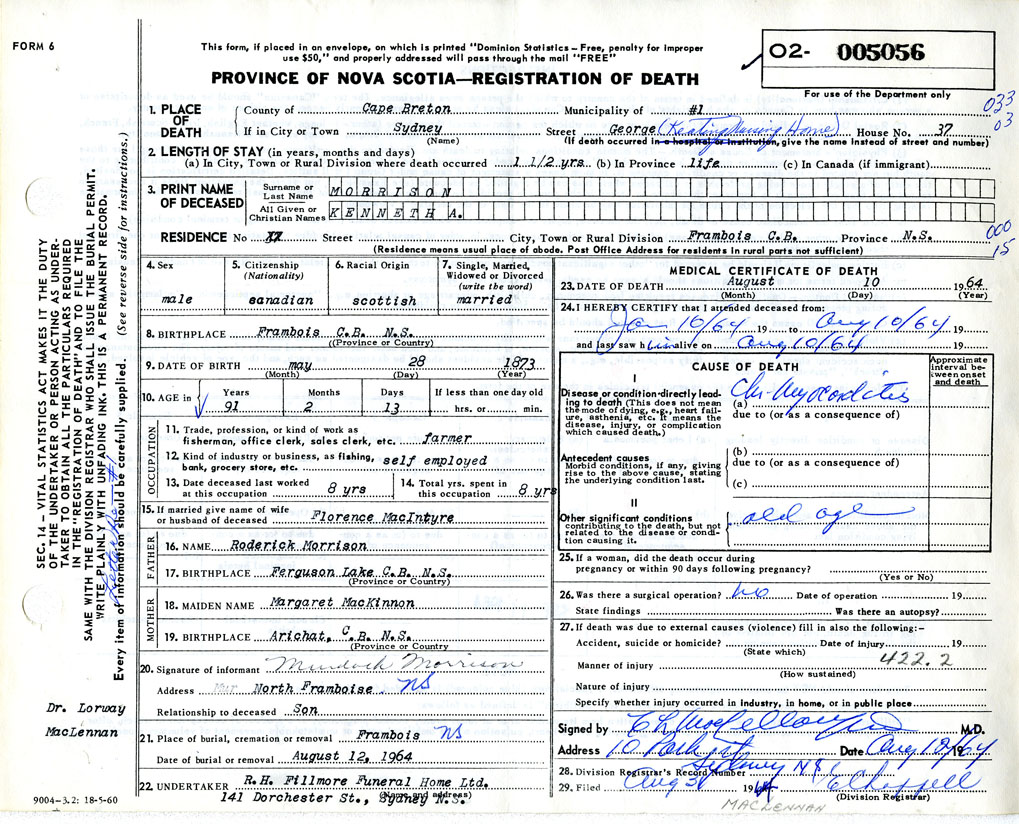 FORM 6
This form, if placed in an envelope, on which is printed "Dominion Statistics – Free, penalty for improper
use $50," and properly addressed will pass through the mail "FREE"
PROVINCE OF NOVA SCOTIA—REGISTRATION OF DEATH
O2- 005056
For use of the Department only
033
03
1. PLACE OF DEATH County of Cape Breton Municipality of #1
If in City or Town Sydney Street George (Keating Nursing Home) House No. 37
(Name) (If death occurred in a hospital or institution, give the name instead of street and number)
2. LENGTH OF STAY (in years, months and days)
(a) In City, Town or Rural Division where death occurred 1 1/2 yrs (b) In Province life (c) In Canada (if immigrant)
3. PRINT NAME OF DECEASED
Surname or Last Name MORRISON
All Given or Christian Names KENNETH A.
RESIDENCE No Street City, Town or Rural Division Frambois C.B. Province N.S.
000
15
(Residence means usual place of abode. Post Office Address for residents in rural parts not sufficient)
4. Sex
male
5. Citizenship
(Nationality)
canadian
6. Racial Origin
scottish
7. Single, Married,
Widowed or Divorced
(write the word)
married
8. BIRTHPLACE Frambois C.B. N.S.
(Province or Country)
9. DATE OF BIRTH may 28 1873
(Month) (Day) (Year)
10. AGE in Years Months Days If less than one day old
91 2 13 hrs. or min.
OCCUPATION
11. Trade, profession, or kind of work as
fisherman, office clerk, sales clerk, etc. farmer
12. Kind of industry or business, as fishing,
bank, grocery store, etc. self employed
13. Date deceased last worked
at this occupation 8 yrs
14. Total yrs. spent in
this occupation 8 yrs
15. If married give name of wife
or husband of deceased Florence MacIntyre
FATHER
16. NAME Roderick Morrison
17. BIRTHPLACE Ferguson Lake C.B. N.S.
(Province or Country)
MOTHER
18. MAIDEN NAME Margaret MacKinnon
19. BIRTHPLACE Arichat, C.B. N.S.
(Province or Country)
20. Signature of informant Murdoch Morrison
Address North Framboise. NS
Relationship to deceased Son
21. Place of burial, cremation or removal Frambois NS
Date of burial or removal August 12, 1964
22. UNDERTAKER R.H. Fillmore Funeral Home Ltd.
(Name and address)
141 Dorchester St., Sydney N.S.
MEDICAL CERTIFICATE OF DEATH
23. DATE OF DEATH August 10 1964
(Month) (Day) (Year)
24. I HEREBY CERTIFY that I attended deceased from:
Jan 10/64 19 to Aug 10/64 19
and last saw him alive on Aug 10/64 19
CAUSE OF DEATH
Approximate
interval be-
tween onset
and death
I
Disease or condition directly lead-
ing to death (This does not mean
the mode of dying, e.g., heart fail-
ure, asthenia, etc. It means the
disease, injury, or complication
which caused death.)
(a) Chr. Myocarditis
due to (or as a consequence of)
Antecedent causes
Morbid conditions, if any, giving
rise to the above cause, stating
the underlying condition last.
(b)
due to (or as a consequence of)
(c)
II
Other significant conditions
contributing to the death, but not
related to the disease or condi-
tion causing it.
old age
25. If a woman, did the death occur during
pregnancy or within 90 days following pregnancy?
(Yes or No)
26. Was there a surgical operation? no Date of operation 19
State findings Was there an autopsy?
27. If death was due to external causes (violence) fill in also the following:–
Accident, suicide or homicide? Date of injury 19
(State which)
422.2
Manner of injury
(How sustained)
Nature of injury
Specify whether injury occurred in industry, in home, or in public place
Signed by M.D.
Address Date Aug 12 1964
Sydney NS
28. Division Registrar's Record Number
29. Filed Aug 3 1964 E Chappell
(Division Registrar)
MACLENNAN
SEC. 14 – VITAL STATISTICS ACT MAKES IT THE DUTY
OF THE UNDERTAKER OR PERSON ACTING AS UNDER-
TAKER TO OBTAIN ALL THE PARTICULARS REQUIRED
IN THE "REGISTRATION OF DEATH" AND TO FILE THE
SAME WITH THE DIVISION REGISTRAR WHO SHALL ISSUE THE BURIAL PERMIT.
WRITE PLAINLY WITH UNFADING INK. THIS IS A PERMANENT RECORD.
Every item of information should be carefully supplied. (See reverse side for instructions.)
Dr. Lorway
MacLennan
9004-3.2: 18-5-60